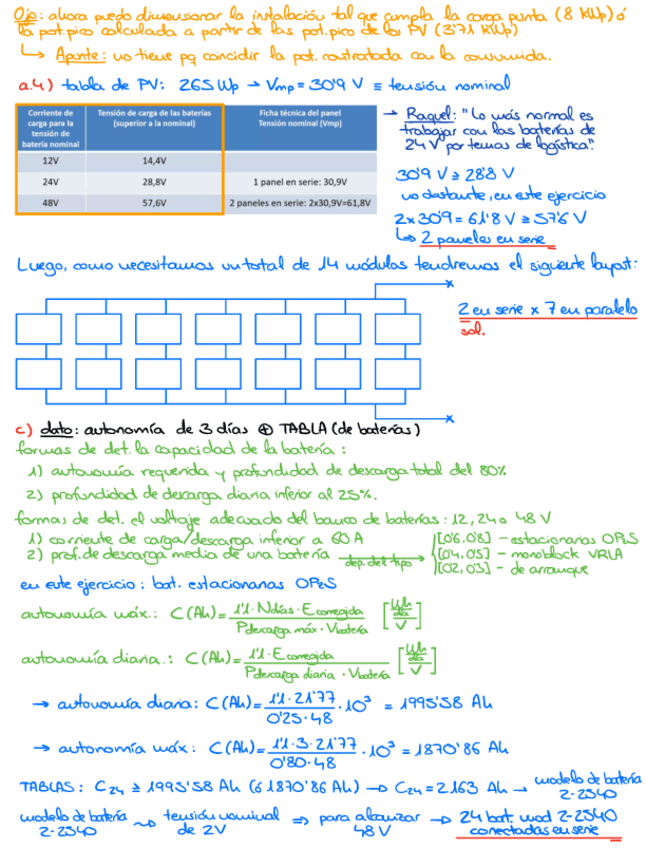 Ojo: ahora puedo dimensionar la instalación tal que cumpla la carga punta (8 kWp) ó
la pot. pico calculada a partir de las pot. pico de los PV (3'71 kWp)
↳ Apunte: no tiene pq concidir la pot. contratada con la consumida.
a.4) tabla de PV: 265 Wp → Vmp = 30'9 V ≡ tensión nominal
Corriente de carga para la tensión de batería nominal
Tensión de carga de las baterías (superior a la nominal)
Ficha técnica del panel Tensión nominal (Vmp)
12V 14,4V
24V 28,8V 1 panel en serie: 30,9V
48V 57,6V 2 paneles en serie: 2x30,9V=61,8V
→ Raquel: "Lo más normal es
trabajar con las baterías de
24 V por temas de logística."
30'9 V ≥ 28'8 V
no obstante, en este ejercicio
2×30'9 = 61'8 V ≥ 57'6 V
↳ 2 paneles en serie
Luego, como necesitamos un total de 14 módulos tendremos el siguiente layout:
2 en serie x 7 en paralelo
sol.
c) dato: autonomía de 3 días ⊕ TABLA (de baterías)
formas de det. la capacidad de la batería:
1) autonomía requerida y profundidad de descarga total del 80%
2) profundidad de descarga diaria inferior al 25%.
formas de det. el voltaje adecuado del banco de baterías: 12, 24 o 48 V
1) corriente de carga/descarga inferior a 60 A
2) prof. de descarga media de una batería
dep. del tipo
[0'6, 0'8] - estacionarias OPzS
[0'4, 0'5] - monoblock VRLA
[0'2, 0'3] - de arranque
en este ejercicio: bat. estacionarias OPzS
autonomía máx.: C(Ah) = 1'1 · Ndías · Ecorregida / Pdescarga máx · Vbatería [Wh/día / V]
autonomía diaria.: C(Ah) = 1'1 · Ecorregida / Pdescarga diaria · Vbatería [Wh/día / V]
→ autonomía diaria: C(Ah) = 1'1 · 21'77 / 0'25 · 48 · 10³ = 1995'58 Ah
→ autonomía máx: C(Ah) = 1'1 · 3 · 21'77 / 0'80 · 48 · 10³ = 1870'86 Ah
TABLAS: C24 ≥ 1995'58 Ah (ó 1870'86 Ah) → C24 = 2163 Ah → modelo de batería 2-2540
modelo de batería 2-2540 ⇝ tensión nominal de 2V ⇒ para alcanzar 48 V → 24 bat. mod 2-2540 conectadas en serie